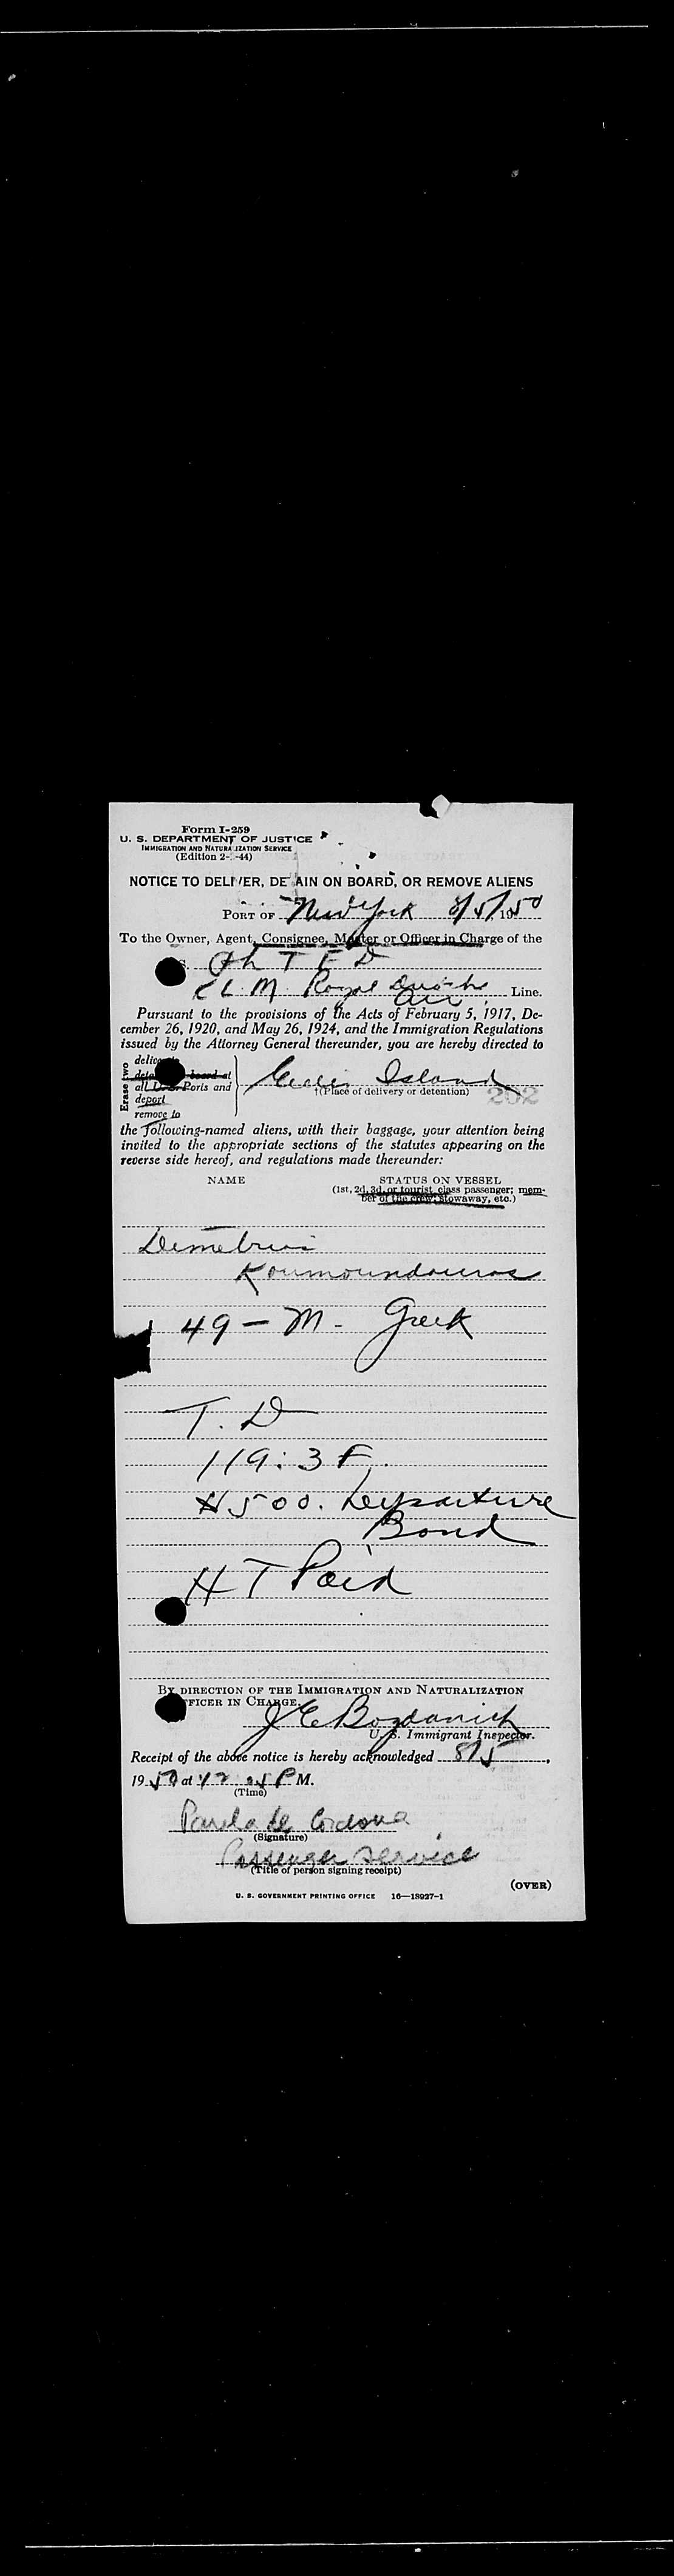 Form I-259
U. S. DEPARTMENT OF JUSTICE
IMMIGRATION AND NATURALIZATION SERVICE
(Edition 2- -44)
NOTICE TO DELIVER, DETAIN ON BOARD, OR REMOVE ALIENS
PORT OF New York 8/5/1950
To the Owner, Agent, Consignee, Master or Officer in Charge of the
S. Ph T F D
K L M Royal Dutch
Air Line.
Pursuant to the provisions of the Acts of February 5, 1917, De-
cember 26, 1920, and May 26, 1924, and the Immigration Regulations
issued by the Attorney General thereunder, you are hereby directed to
Erase two
deliver to
detain on board at
all U. S. Ports and
deport
remove to
Ellis Island
†(Place of delivery or detention) 202
the following-named aliens, with their baggage, your attention being
invited to the appropriate sections of the statutes appearing on the
reverse side hereof, and regulations made thereunder:
NAME STATUS ON VESSEL
(1st, 2d, 3d, or tourist class passenger; mem-
ber of the crew; stowaway, etc.)
Demetrius
Koumoundouros
49 - M - Greek
T. D
119: 3 F.
$500. Departure
Bond
H T Paid
BY DIRECTION OF THE IMMIGRATION AND NATURALIZATION
OFFICER IN CHARGE.
J E Bozdanich
U. S. Immigrant Inspector.
Receipt of the above notice is hereby acknowledged 8/5,
1950 at 12 05 P M.
(Time)
de Cordova
(Signature)
Passenger Service
(Title of person signing receipt)
(OVER)
U. S. GOVERNMENT PRINTING OFFICE 16—18927-1